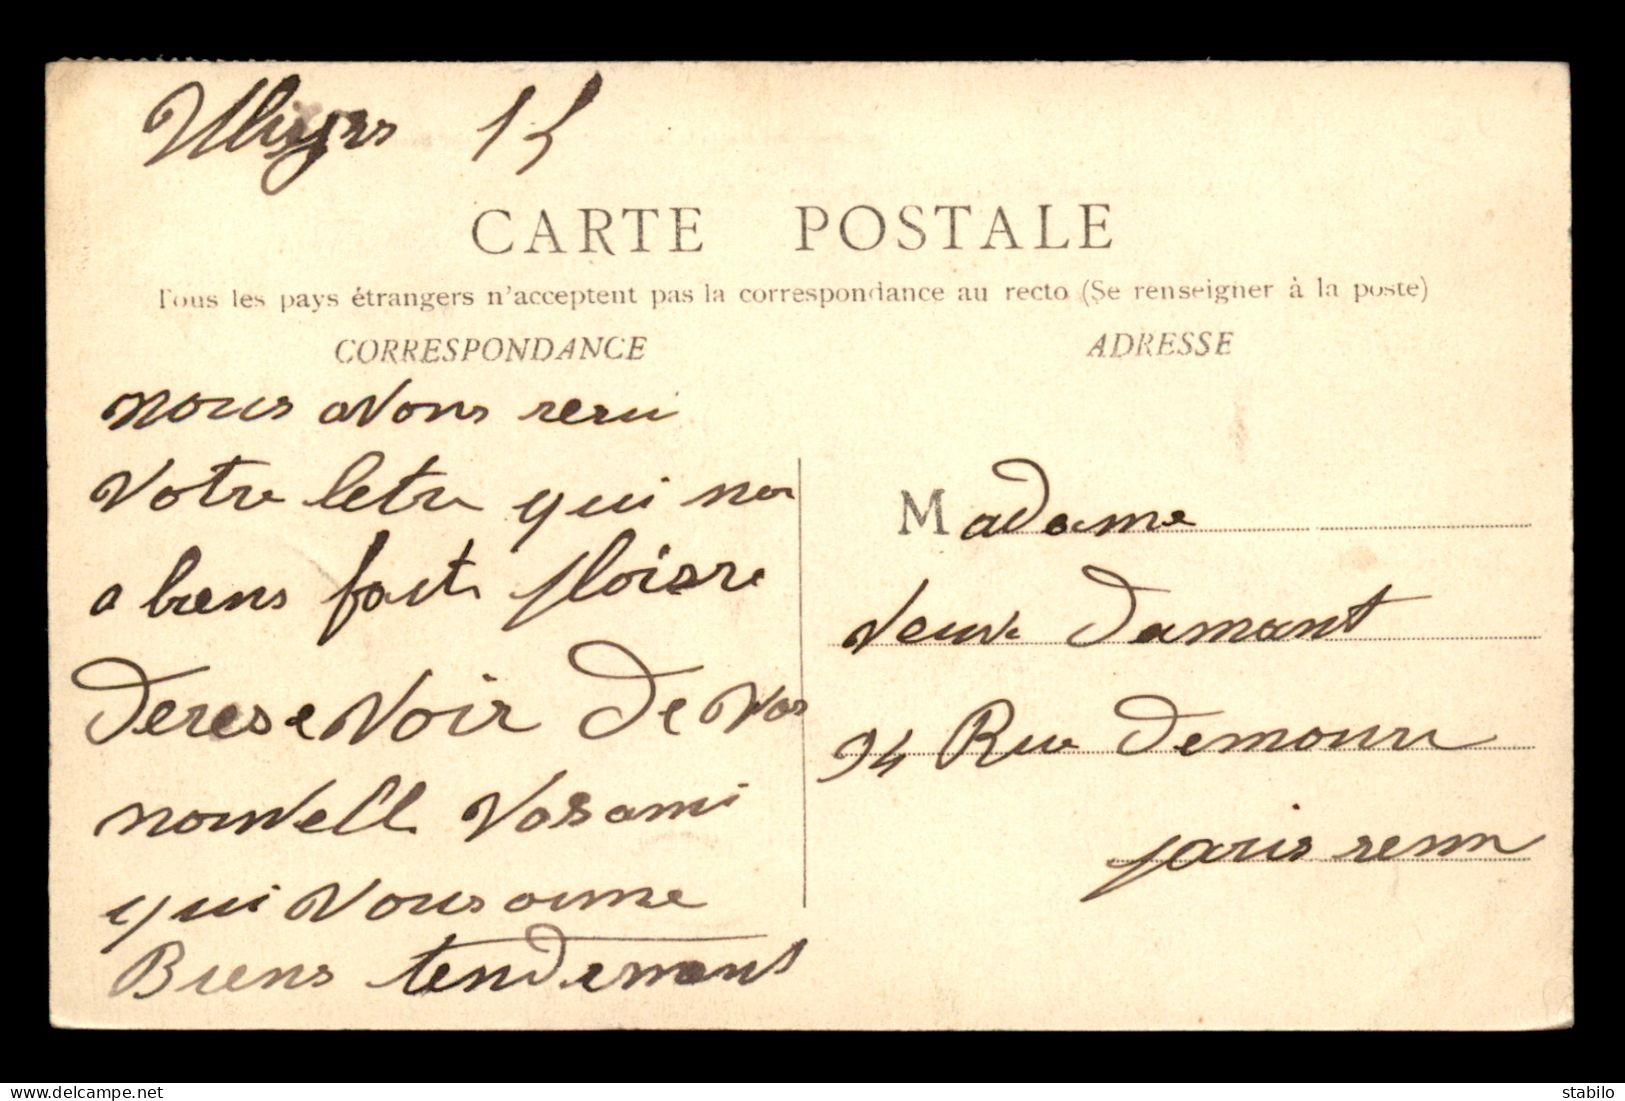 15
CARTE POSTALE
Tous les pays étrangers n'acceptent pas la correspondance au recto (Se renseigner à la poste)
CORRESPONDANCE
ADRESSE
nous avons resu
Votre letre qui nou
a biens fait ploisre
de rese voir de vos
nouvell Vos ami
qui vous aime
Biens tendemant
Madame
Veuve Damant
94 Rue demours
paris
stabilo